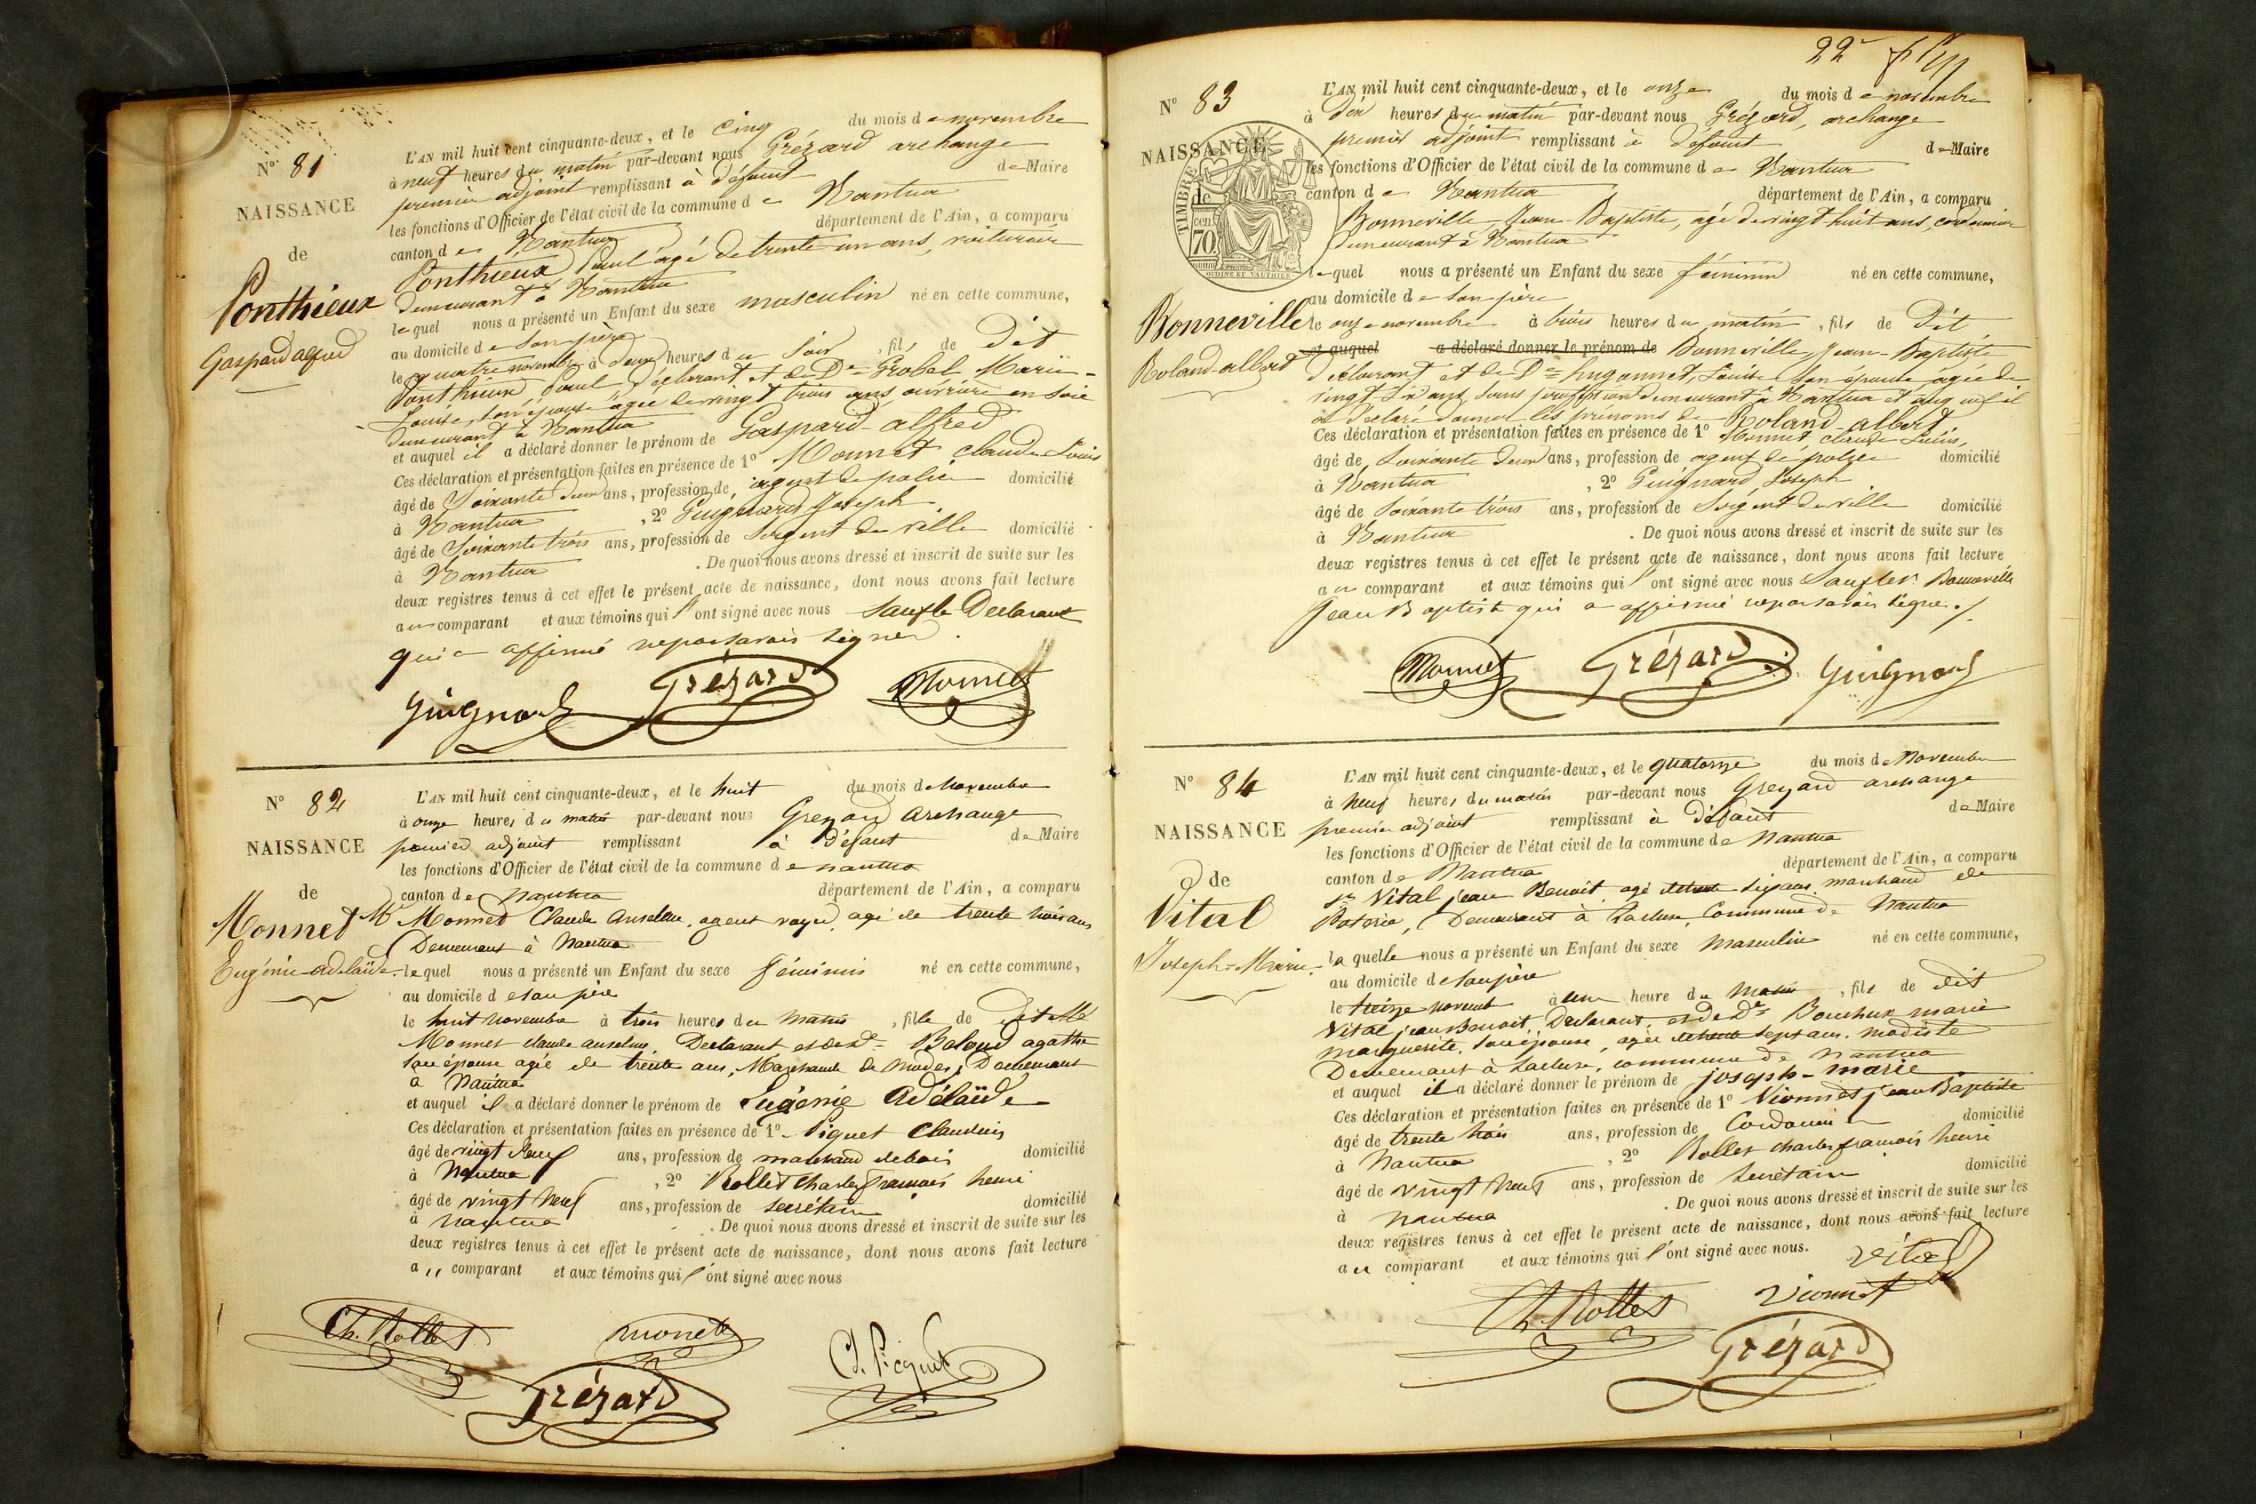 N° 81
NAISSANCE
de
Ponthieux
Gaspard alfred
L'AN mil huit cent cinquante-deux, et le cinq du mois de novembre
à neuf heures du matin par-devant nous Grézard archange
premier adjoint remplissant à défaut de Maire
les fonctions d'Officier de l'état civil de la commune de Nantua
canton de Nantua département de l'Ain, a comparu
Ponthieux Paul âgé de trente un ans, voiturier
demeurant à Nantua
lequel nous a présenté un Enfant du sexe masculin né en cette commune,
au domicile de son père
le quatre novembre à deux heures du soir, fils de dit
Ponthieux Paul déclarant et de De Grobel Marie-
Louise, son épouse âgée de vingt trois ans ouvrière en soie
demeurant à Nantua
et auquel il a déclaré donner le prénom de Gaspard-alfred
Ces déclaration et présentation faites en présence de 1° Monnet claude Louis
âgé de Soixante deux ans, profession de agent de police domicilié
à Nantua, 2° Guignard Joseph
âgé de Soixante trois ans, profession de Sergent de ville domicilié
à Nantua. De quoi nous avons dressé et inscrit de suite sur les
deux registres tenus à cet effet le présent acte de naissance, dont nous avons fait lecture
au comparant et aux témoins qui l'ont signé avec nous sauf le Declarant
qui a affirmé ne pas savoir signer.
Guignard Grézard Monnet
N° 82
NAISSANCE
de
Monnet
Eugénie-adelaïde
L'AN mil huit cent cinquante-deux, et le huit du mois de Novembre
à onze heures du matin par-devant nous Grezard Archange
premier adjoint remplissant à défaut de Maire
les fonctions d'Officier de l'état civil de la commune de nantua
canton de Nantua département de l'Ain, a comparu
Mr Monnet Claude Anselme, agent voyer, agé de trente trois ans
Demeurant à Nantua
lequel nous a présenté un Enfant du sexe féminin né en cette commune,
au domicile de son père
le huit novembre à trois heures du matin, fille de dit
Monnet claude anselme, Declarant et de De Baloud agathe
son épouse agée de trente ans, Marchande de Modes, Demeurant
à Nantua
et auquel il a déclaré donner le prénom de Eugénie Adélaïde
Ces déclaration et présentation faites en présence de 1° Piquet Claudius
âgé de vingt neuf ans, profession de marchand de bois domicilié
à Nantua, 2° Rollet Charles françois henri
âgé de vingt neuf ans, profession de secrétaire domicilié
à nantua. De quoi nous avons dressé et inscrit de suite sur les
deux registres tenus à cet effet le présent acte de naissance, dont nous avons fait lecture
au comparant et aux témoins qui l'ont signé avec nous
Ch. Rollet Monnet
Grézard Cl. Picquet
22e
N° 83
NAISSANCE
de
TIMBRE
70
Bonneville
Roland-albert
L'AN mil huit cent cinquante-deux, et le onze du mois de novembre
à dix heures du matin par-devant nous Grézard, archange
premier adjoint remplissant à défaut de Maire
les fonctions d'Officier de l'état civil de la commune de Nantua
canton de Nantua département de l'Ain, a comparu
Bonneville Jean-Baptiste, agé de vingt-huit ans, cordonnier
demeurant à Nantua
lequel nous a présenté un Enfant du sexe féminin né en cette commune,
au domicile de son père
le onze novembre à trois heures du matin, fils de dit
et auquel a déclaré donner le prénom de Bonneville, Jean-Baptiste
déclarant et de De Hugonnet, Louise son épouse âgée de
vingt-six ans, sans profession demeurant à Nantua et auquel il
a déclaré donner les prénoms de Roland-albert
Ces déclaration et présentation faites en présence de 1° Monnet claude Louis,
âgé de Soixante deux ans, profession de agent de police domicilié
à Nantua, 2° Guignard, Joseph
âgé de Soixante trois ans, profession de Sergent de ville domicilié
à Nantua. De quoi nous avons dressé et inscrit de suite sur les
deux registres tenus à cet effet le présent acte de naissance, dont nous avons fait lecture
au comparant et aux témoins qui l'ont signé avec nous Sauf le Sr Bonneville
Jean Baptiste qui a affirmé ne pas savoir signer./.
Monnet Grézard Guignard
N° 84
NAISSANCE
de
Vital
Joseph-Marie
L'AN mil huit cent cinquante-deux, et le quatorze du mois de Novembre
à neuf heures du matin par-devant nous Grezard archange
premier adjoint remplissant à défaut de Maire
les fonctions d'Officier de l'état civil de la commune de Nantua
canton de Nantua département de l'Ain, a comparu
Sr Vital jean Benoit, agé de trente six ans, marchand de
Poterie, Demeurant à Lacluse, Commune de Nantua
laquelle nous a présenté un Enfant du sexe masculin né en cette commune,
au domicile de son père
le treize novembre à une heure du matin, fils de dit
Vital jean Benoit, Declarant, et de De Bouchux marie
marguerite, son épouse, agée de trente sept ans, modiste
Demeurant à Lacluse, commune de Nantua
et auquel il a déclaré donner le prénom de joseph-marie
Ces déclaration et présentation faites en présence de 1° Vionnet jean Baptiste
âgé de trente trois ans, profession de Cordonnier domicilié
à Nantua, 2° Rollet charles francois henri
âgé de vingt neuf ans, profession de secretaire domicilié
à Nantua. De quoi nous avons dressé et inscrit de suite sur les
deux registres tenus à cet effet le présent acte de naissance, dont nous avons fait lecture
au comparant et aux témoins qui l'ont signé avec nous. Vital
Ch. Rollet Vionnet
Grézard